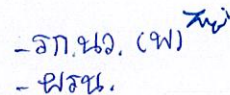 - รก.นว. (พ)
- ผรน.